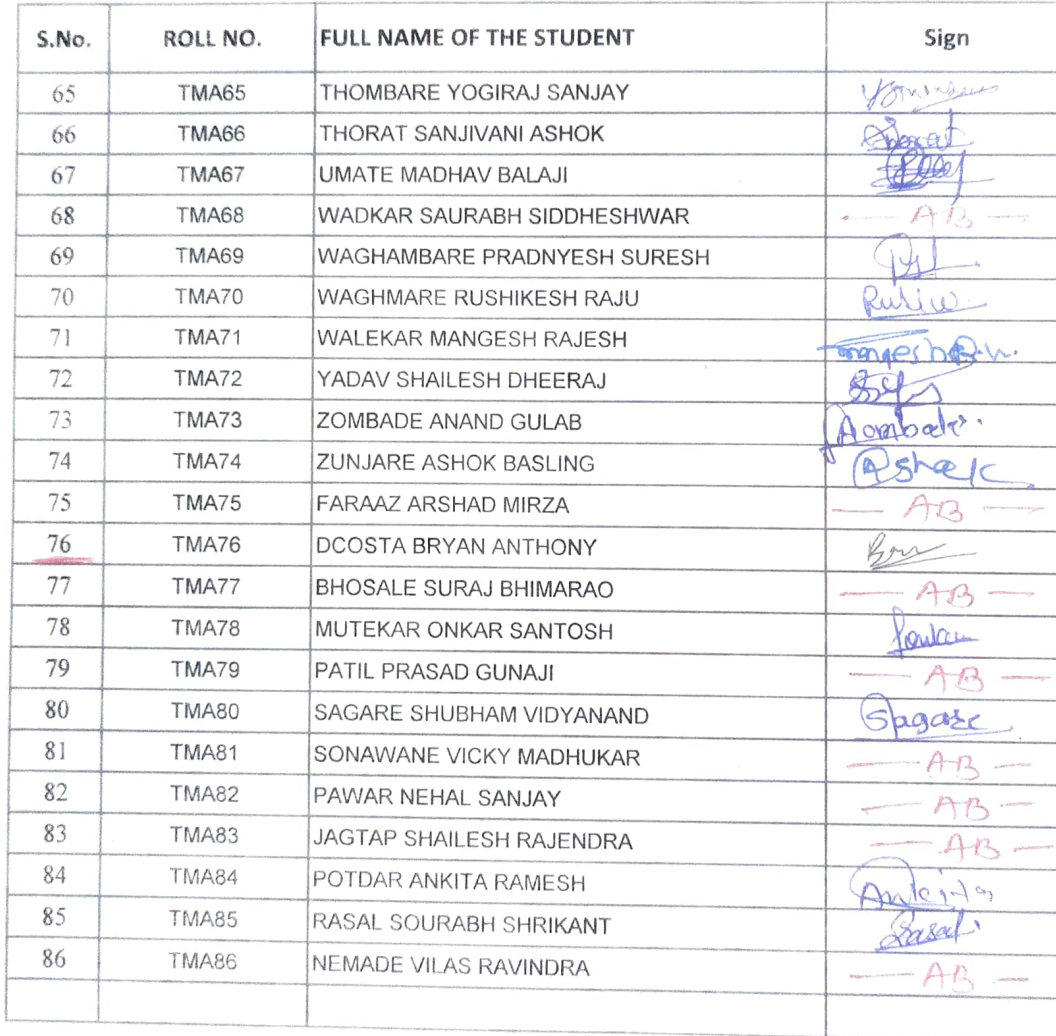 S.No. ROLL NO. FULL NAME OF THE STUDENT Sign
65 TMA65 THOMBARE YOGIRAJ SANJAY
66 TMA66 THORAT SANJIVANI ASHOK
67 TMA67 UMATE MADHAV BALAJI
68 TMA68 WADKAR SAURABH SIDDHESHWAR — AB —
69 TMA69 WAGHAMBARE PRADNYESH SURESH
70 TMA70 WAGHMARE RUSHIKESH RAJU
71 TMA71 WALEKAR MANGESH RAJESH
72 TMA72 YADAV SHAILESH DHEERAJ
73 TMA73 ZOMBADE ANAND GULAB
74 TMA74 ZUNJARE ASHOK BASLING Ashok
75 TMA75 FARAAZ ARSHAD MIRZA — AB —
76 TMA76 DCOSTA BRYAN ANTHONY
77 TMA77 BHOSALE SURAJ BHIMARAO — AB —
78 TMA78 MUTEKAR ONKAR SANTOSH
79 TMA79 PATIL PRASAD GUNAJI — AB —
80 TMA80 SAGARE SHUBHAM VIDYANAND Sagare
81 TMA81 SONAWANE VICKY MADHUKAR — AB —
82 TMA82 PAWAR NEHAL SANJAY — AB —
83 TMA83 JAGTAP SHAILESH RAJENDRA — AB —
84 TMA84 POTDAR ANKITA RAMESH Ankita
85 TMA85 RASAL SOURABH SHRIKANT Rasal
86 TMA86 NEMADE VILAS RAVINDRA — AB —